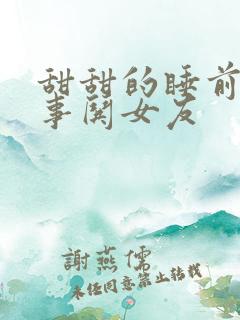 甜甜的睡前
事関女友
謝燕儒
未经同意禁止转载